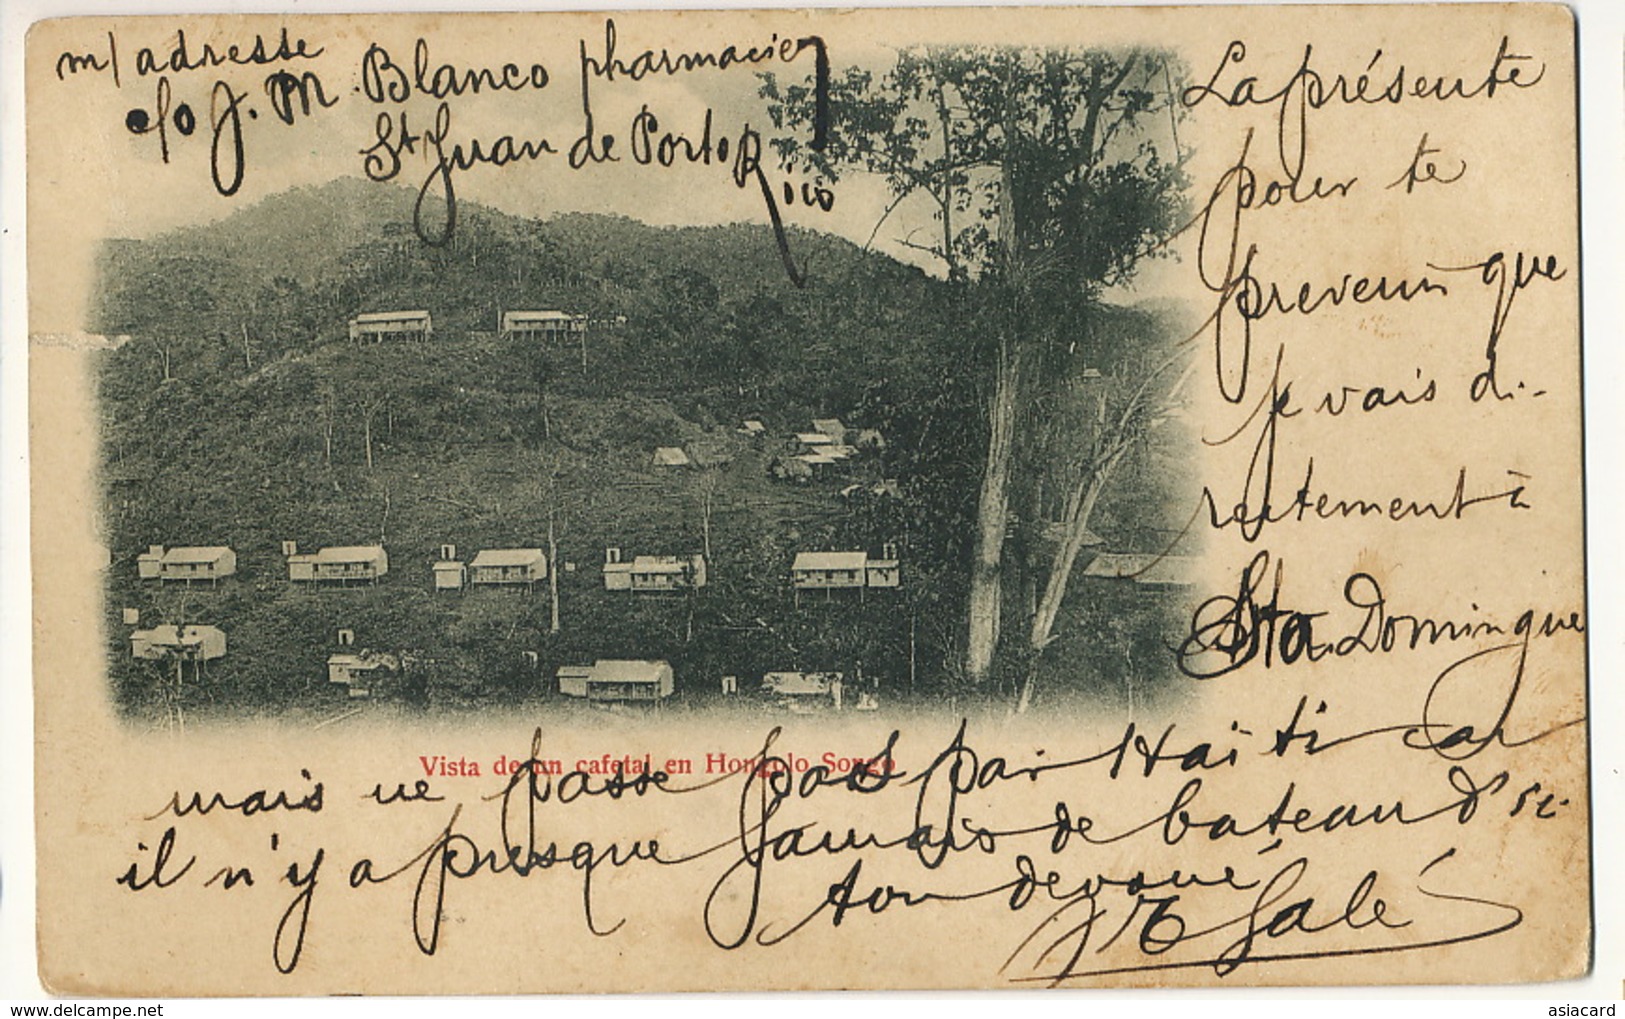 m/ adresse
c/o J. M. Blanco pharmacien
St Juan de Porto Rico
La présente
pour te
prevenir que
je vais di-
rectement à
Sto. Domingue
mais ne passe pas par Haïti car
il n'y a presque jamais de bateau d'ici
ton devoué
Galé
Vista de un cafetal en Hongolo Songo
asiacard
www.delcampe.net